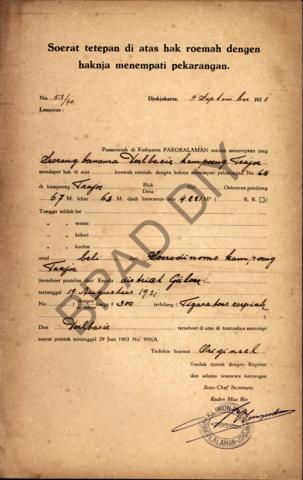 Soerat tetepan di atas hak roemah dengen
haknja menempati pekarangan.
No. 53/40.
Djokjakarta, 9 September 1921
Lampiran:
Pamarintah di Kadipaten PAKOEALAMAN soedah menetepken jang
Seorang bernama Dolbasir kampoeng Trajoe
mendapet hak di atas roemah, dengen haknja menempati pekarangan No. 60
di kampoeng Trajoe Blok Desa Oekoeran pandjang
67 M. lebar 63 M. djadi loewasnja ada 4221 M² R. R.
Tonggo sebelah lor
" " wetan
" " kidoel
" " koelon
asal beli dari Sorodinomo kampoeng
Trajoe
terseboet pratelan dari Kepala district Galoer
tertanggal 19 Augustus 1921
No. 300 terbilang Tigaratoes roepiah
Dan Dolbasir terseboet di atas
soerat pranatan tertanggal 29 Juni 1903 No.
Terbikin boewat Origineel
Soedah tjotjok dengen Register
dan adanja semoewa katrangan.
Sous-Chef Secretaris,
Raden Mas Rio
BPAD DIY